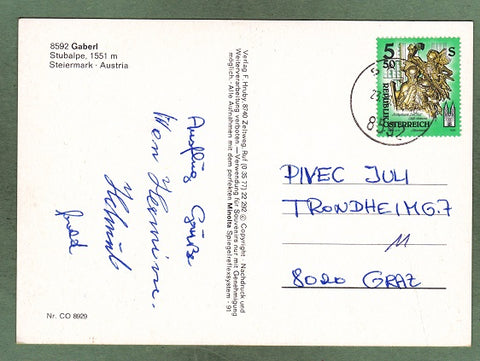 8592 Gaberl
Stubalpe, 1551 m
Steiermark · Austria
Ausflug Grüße
Von Hermine.
Helmut
Nr. CO 8929
Verlag F. Hruby, 8740 Zeltweg, Ruf (0 35 77) 22 292 © Copyright · Nachdruck und
Weiterverarbeitung verboten. – Verwendung für Souvenirs nur mit Genehmigung
möglich. · Alle Aufnahmen mit dem perfekten Minolta Spiegelreflexsystem · 91
5 50 S
REPUBLIK
ÖSTERREICH
PIVEC JULI
TRONDHEIMG. 7
11
8020 GRAZ